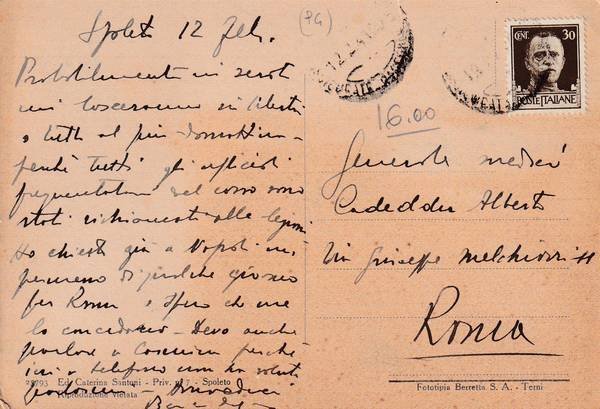 Spoleto 12 Feb.
(PG)
Probabilmente in serata
mi lasceranno in libertà
o tutt' al più domattina
perché tutti gli ufficiali
frequentatori del corso sono
stati richiamati alle legioni
Ho chiesto già a Napoli un
permesso di qualche giorno
per Roma e spero che me
lo concedano - Devo anche
parlare a perché
ieri a telefono non ha voluto
- Arrivederci
Baci
CENT. 30
POSTE ITALIANE
16.00
Generale medico
Cadeddu Alberto
Via Giuseppe Melchiorri
Roma
25793 Ed. Caterina Santoni - Priv. n. 7 - Spoleto
Riproduzione vietata
Fototipia Berretta S. A. - Terni